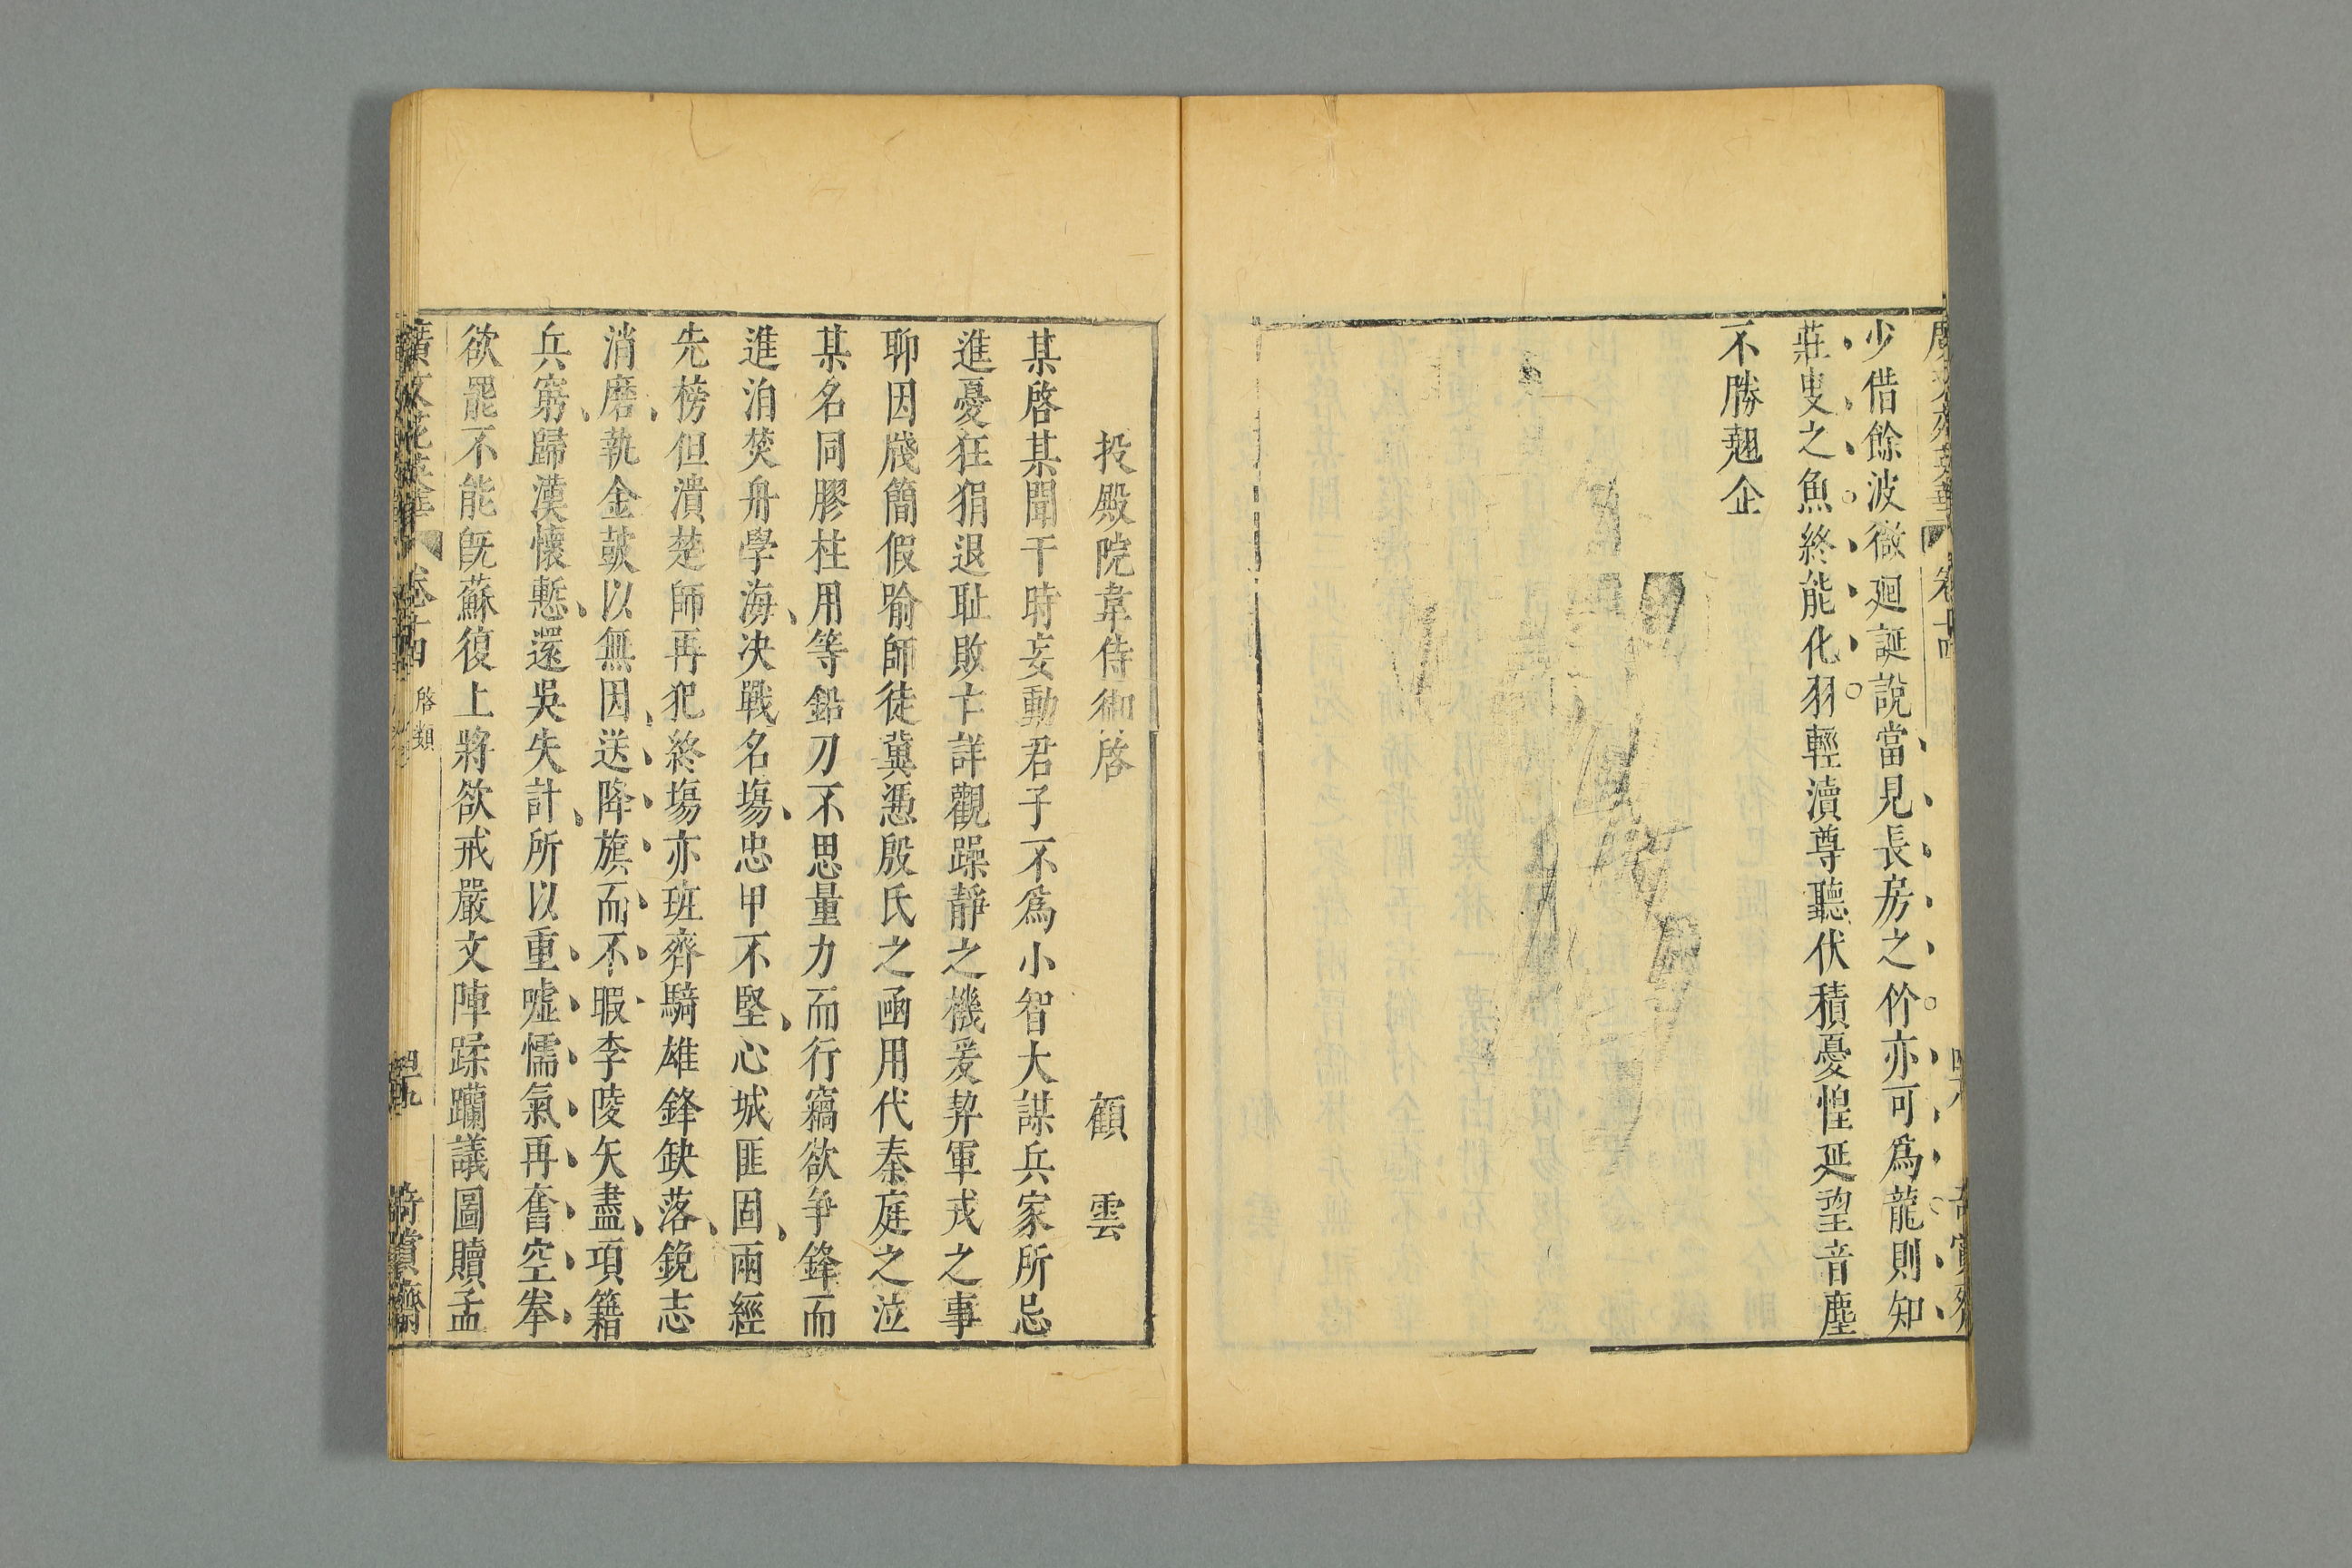 少借餘波微廻誕說當見長房之竹亦可爲龍則知
莊叟之魚終能化羽輕瀆尊聽伏積憂惶延望音塵
不勝翹企
投殿院韋侍御啓 顧雲
某啓某聞干時妄動君子不爲小智大謀兵家所忌
進憂狂狷退耻敗亡詳觀躁靜之機爰契軍戎之事
聊因牋簡假喻師徒冀憑殷氏之函用代秦庭之泣
某名同膠柱用等鉛刀不思量力而行竊欲爭鋒而
進泊焚舟學海決戰名塲忠甲不堅心城匪固兩經
先榜但潰楚師再犯終塲亦班齊騎雄鋒缺落銳志
消磨執金鼓以無因送降旗而不暇李陵矢盡項籍
兵窮歸漢懷慙還吳失計所以重噓懦氣再奮空拳
欲罷不能旣蘇復上將欲戒嚴文陣蹂躪議圖贖孟
廣文苑英華 卷十四 啓類 四十九